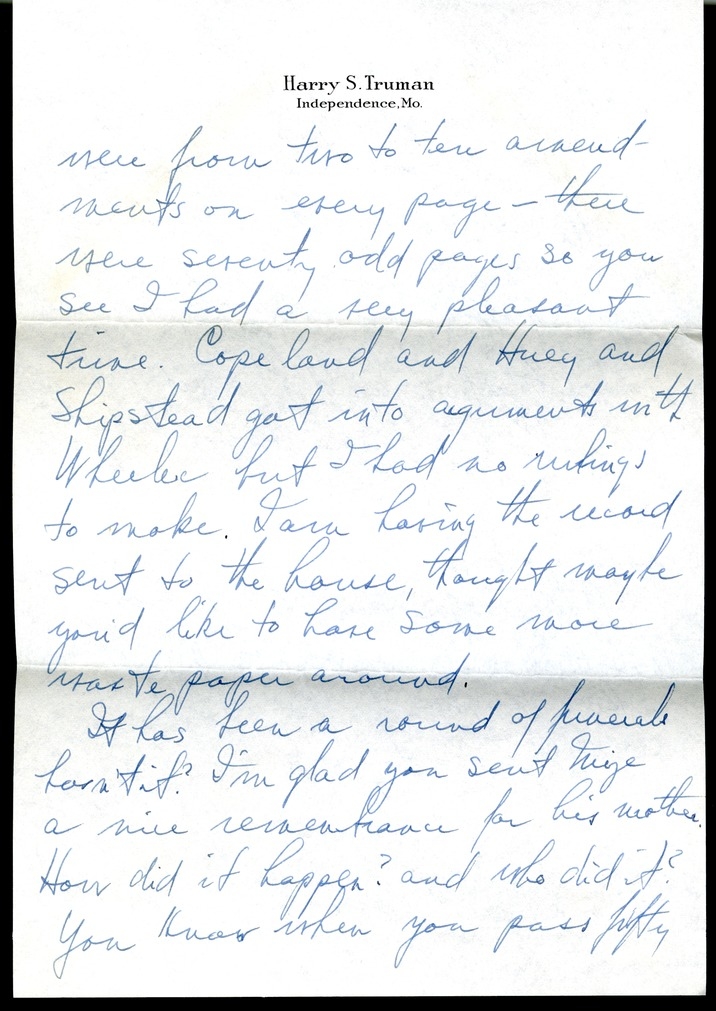 Harry S. Truman
Independence, Mo.
were from two to ten amend-
ments on every page – there
were seventy odd pages so you
see I had a very pleasant
time. Copeland and Huey and
Shipstead got into aguments with
Wheeler but I had no rulings
to make. I am having the record
sent to the house, thought maybe
you'd like to have some more
waste paper around.
It has been a round of funerals
hasn't it? I'm glad you sent Mize
a nice remembrance for his mother.
How did it happen? and who did it?
You know when you pass fifty